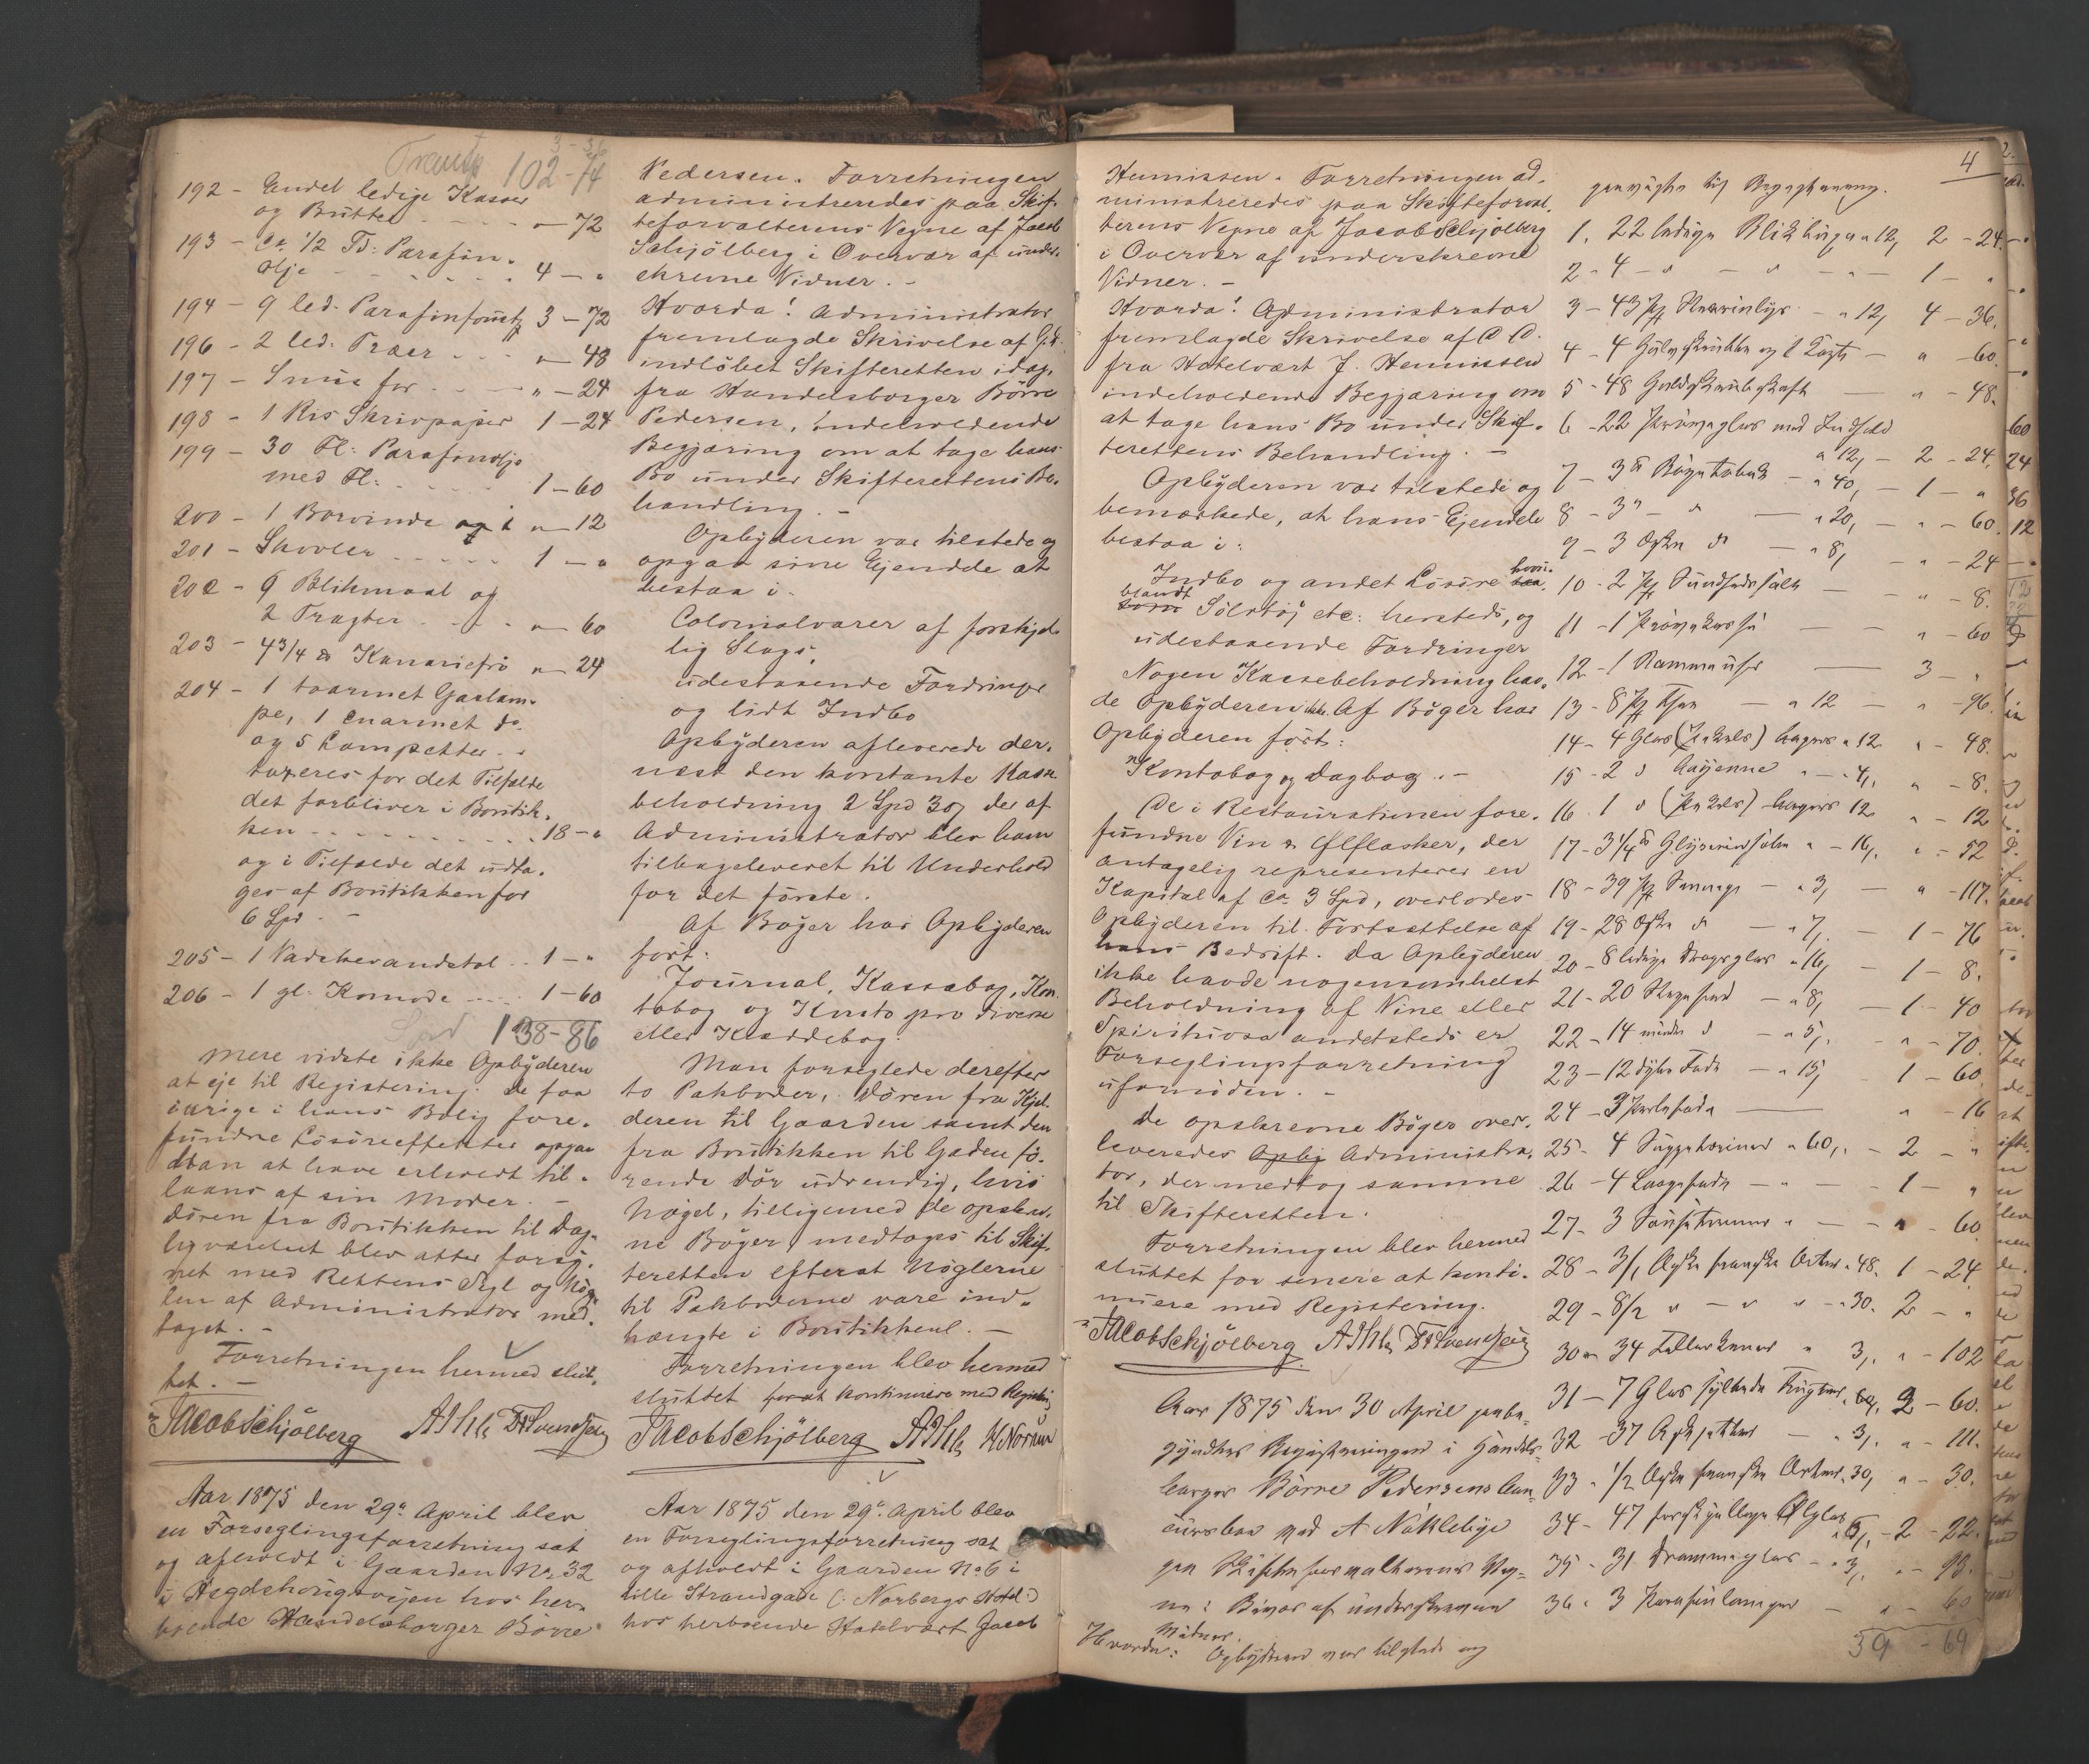 Transp 102-74
192 - Endel ledige Kasser
og Bøtter - - - " - 72
193 - Ca 1/2 Td: Parafin-
Olje - - - - 4 - "
194 - 9 led. Parafinfoust 3 - 72
196 - 2 led. Træer - - - " - 48
197 - Snus for - - - " - 24
198 - 1 Ris Skrivpapir 1 - 24
199 - 30 Fl: Parafinolje
med Fl: - - - - 1 - 60
200 - 1 Borvinde og 1 " - 12
201 - Skovler - - - - - 1 - "
202 - 9 Blikmaal og
2 Tragter - - - " - 60
203 - 4 3/4 ℔ Kanariefrö " - 24
204 - 1 toarmet Gaslam-
pe, 1 enarmet do
og 5 Lampetter - -
taxeres for det Tilfælde
det forbliver i Boutik-
ken - - - - - - 18 - "
og i Tilfælde det udta-
ges af Boutikken for
6 Spd. -
205 - 1 Vadskevandstol - - 1 - "
206 - 1 gl. Komode - - - 1 - 60
Spd 138 - 86
Mere vidste ikke Opbyderen
at eje til Registering. De faa
övrige i hans Bolig fore-
fundne Lösöreeffekter opgav
han at have erholdt til-
laans af sin Moder. -
Døren fra Boutikken til Dag-
ligværelset blev atter forsy-
net med Rettens Segl og Nög-
len af Administrator med-
taget. -
Forretningen hermed slut-
tet. -
Jacob Schjölberg A Ihle Fr Svendsen
Aar 1875 den 29de April blev
en Forseglingsforretning sat
og afholdt i Gaarden No 32
i Hegdehougsvejen hos her-
boende Handelsborger Börre
Pedersen. Forretningen
administreredes paa Skif-
teforvalterens Vegne af Jacob
Schjölberg i Overvær af under-
skrevne Vidner. -
Hvorda! Administrator
fremlagde Skrivelse af G. D.
indlöbet Skifteretten idag,
fra Handelsborger Börre
Pedersen, indeholdende
Begjæring om at tage hans
Bo under Skifterettens Be-
handling. -
Opbyderen var tilstede og
opgav sine Ejendele at
bestaa i -
Colonialvarer af forskjel-
lig Slags,
udestaaende Fordringer
og lidt Indbo
Opbyderen afleverede der-
næst den kontante Kasse-
beholdning 2 Spd 30, der af
Administrator blev ham
tilbageleveret til Underhold
for det förste.
Af Böger har Opbyderen
fört:
Journal, Kassabog, Kon-
tobog og Konto pro diverse
eller Kladdebog.
Man forseglede derefter
to Pakboder, Døren fra Kjel-
deren til Gaarden samt den
fra Boutikken til Gaden fö-
rende Dör udvendig, hvis
Nøgel, tilligemed de opskrev-
ne Böger, medtoges til Skif-
teretten efterat Nöglerne
til Pakboderne vare ind-
hængte i Boutikken. -
Forretningen blev hermed
sluttet for at kontinuere med Registering
Jacob Schjölberg A Ihle H Norum
Aar 1875 den 29de April blev
en Forseglingsforretning sat
og afholdt i Gaarden No 6 i
lille Strandgade (: Norbergs Hotel :)
hos herboende Hotelvært Jacob
Hennissen. Forretningen ad-
ministreredes paa Skifteforval-
terens Vegne af Jacob Schjölberg
i Overvær af underskrevne
Vidner. -
Hvorda! Administrator
fremlagde Skrivelse af D. D.
fra Hotelvært J. Hennissen
indeholdende Begjæring om
at tage hans Bo under Skif-
terettens Behandling. -
Opbyderen var tilstede og
bemærkede, at hans Ejendele
bestaa i:
Indbo og andet Lösöre hvori-
blandt Sölvtöj etc: hersteds, og
udestaaende Fordringer
Nogen Kassebeholdning hav-
de Opbyderen ikke. Af Böger har
Opbyderen fört:
Kontobog og Dagbog. -
De i Restaurationen fore-
fundne Vin & Ölflasker, der
antagelig representerer en
Kapital af Ca 3 Spd, overlodes
Opbyderen til Fortsættelse af
hans Bedrift. Da Opbyderen
ikke havde nogensomhelst
Beholdning af Vine eller
Spirituosa andetsteds er
Forseglingsforretning
ufornöden. -
De opskrevne Böger over-
leveredes Opby Administra-
tor, der medtog samme
til Skifteretten.
Forretningen blev hermed
sluttet for senere at konti-
nuere med Registering.
Jacob Schjölberg A Ihle Fr Svendsen
Aar 1875 den 30 April paabe-
gyndtes Registreringen i Handels-
borger Börre Pedersens Con-
cursbo ved A Nöklebye
paa Skifteforvalterens Veg-
ne i Bivær af underskrevne
Vidner.
Hvorda: Opbyderen var tilstede og
4
paaviste til Registrering.
1. 22 ledige Blikbüxer a 12, 2 - 24.
2 - 4 - " - " - " - 1 - "
3 - 43 Pk Stearinlys - " 12, 4 - 36.
4 - 4 Gulvskrubber og 1 Kost - " - 60.
5 - 48 Gulvskrubskaft - " - 48.
6 - 22 Pröveglas med Indhold
a 12, - 2 - 24.
7 - 3 ℔ Rögetobak - " 40, - 1 - "
8 - 3 " - " - " 20, - " - 60.
9 - 3 Æsker do - " 8, - " - 24
10 - 2 Pk Sundhedssalt - " - 8.
11 - 1 Prövekasse - " - 60
12 - 1 - 3 - "
13 - 8 Pk - " 12 - " - 96.
14 - 4 Glas capers " 12 " - 48.
15 - 2 d Cayenne " - 4, " - 8.
16 1 d capers 12 " - 12
17 - 3 1/4 ℔ Glycerinsæbe " - 16, " - 52
18 - 39 Pk - " 3, - " - 117.
19 - 28 Æsker do - " 7, - 1 - 76
20 - 8 ledige Dropsglas " 16, - 1 - 8.
21 - 20 - " 8, - 1 - 40
22 - 14 mindre d - " 5, - " - 70.
23 - 12 dybe Fade - " 15, 1 - 60.
24 - 3 - " - 16
25 - 4 Suppeteriner " 60, - 2 - "
26 - 4 - " - 1 - "
27 - 3 " - " - 60
28 - 3/1 Æsker franske Erter " 48. 1 - 24
29 - 8/2 " - " " - " 30. 2 - "
30 - 34 Tallerkener " 3, " - 102
31 - 7 Glas syltede Frugter " 60, 3 - 60.
32 - 37 Askjetter - " 3, " - 111.
33 - 1/2 Æske franske Erter " 30, " - 30.
34 - 47 forskjellige Ölglas
" 6, - 2 - 22.
35 - 31 Drammeglas - " 3, " - 93.
36 - 3 Parafinlamper - " - 60
39 - 69